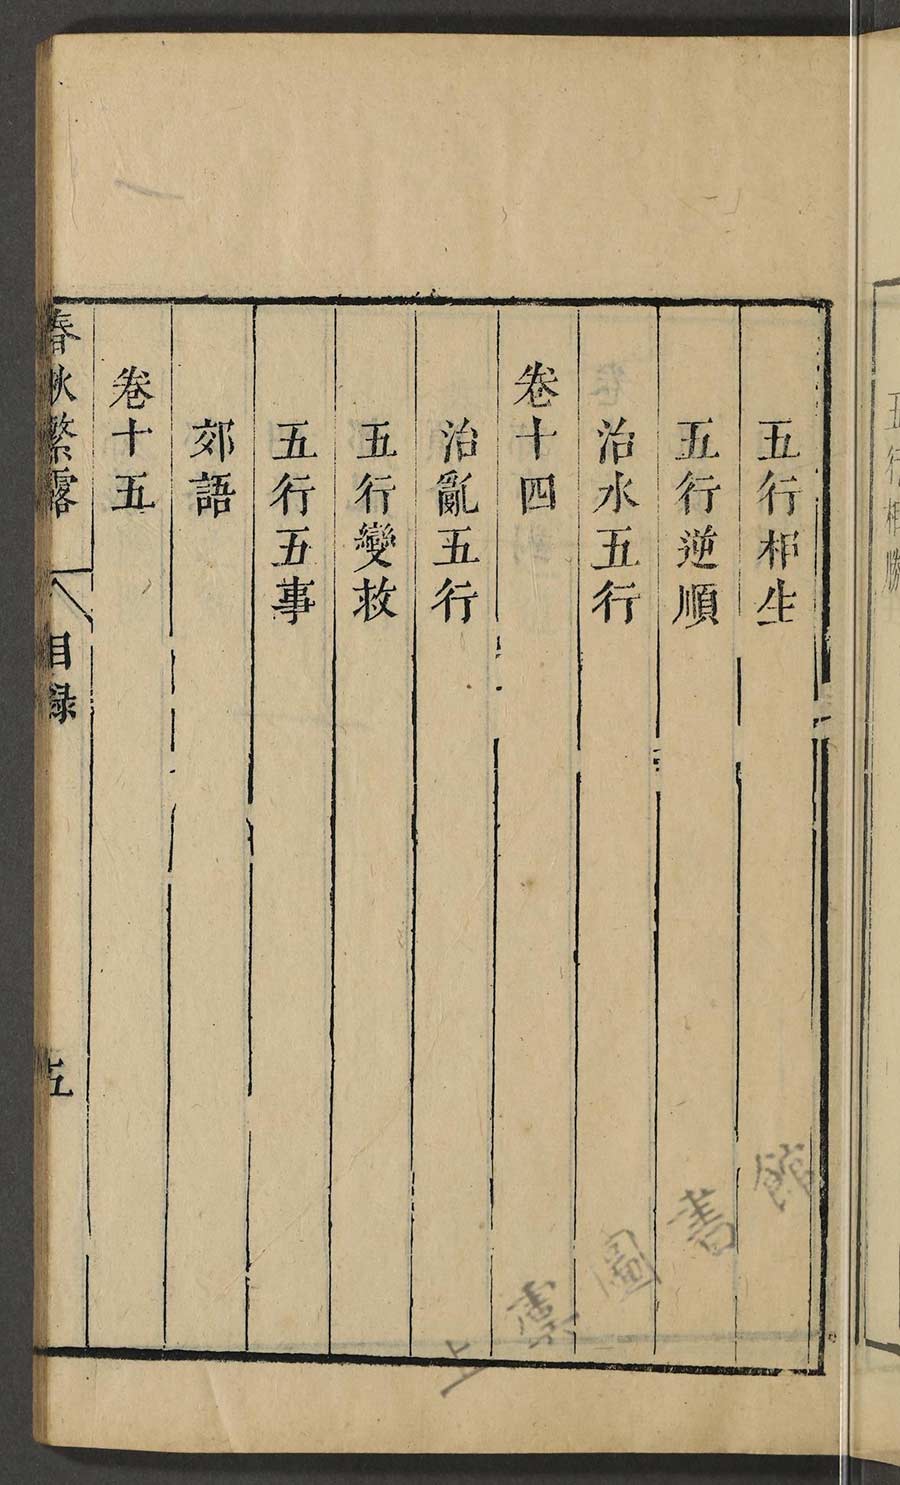 五行相勝
五行相生
五行逆順
治水五行
卷十四
治亂五行
五行變救
五行五事
郊語
卷十五
春秋繁露
目録
五
上虞圖書館